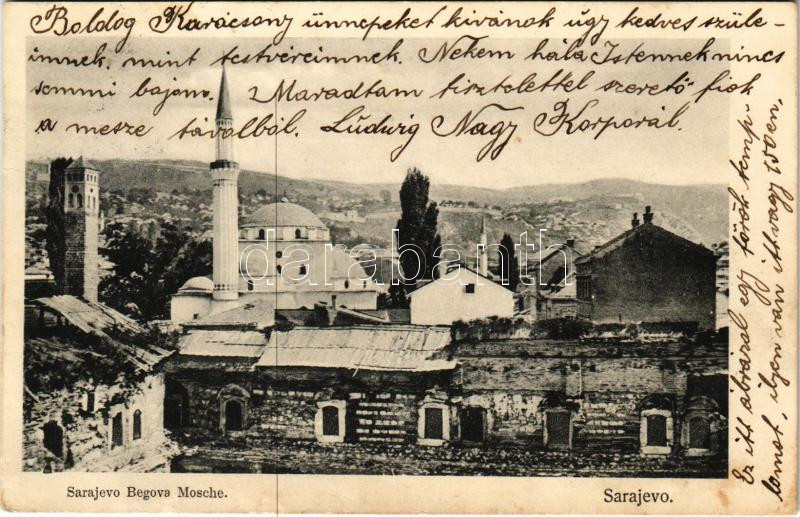 Boldog Karácsony ünnepeket kivánok úgy kedves szüle-
imnek, mint testvéreimnek. Nekem hála Istennek nincs
semmi bajom. Maradtam tisztelettel szerető fiok
a mesze távolból. Lúdwig Nagy Korporál.
Ez itt ábrázal egy török temp-
lomot, ilyen van itt vagy 150en.
darabanth.com
Sarajevo Begova Mosche.
Sarajevo.